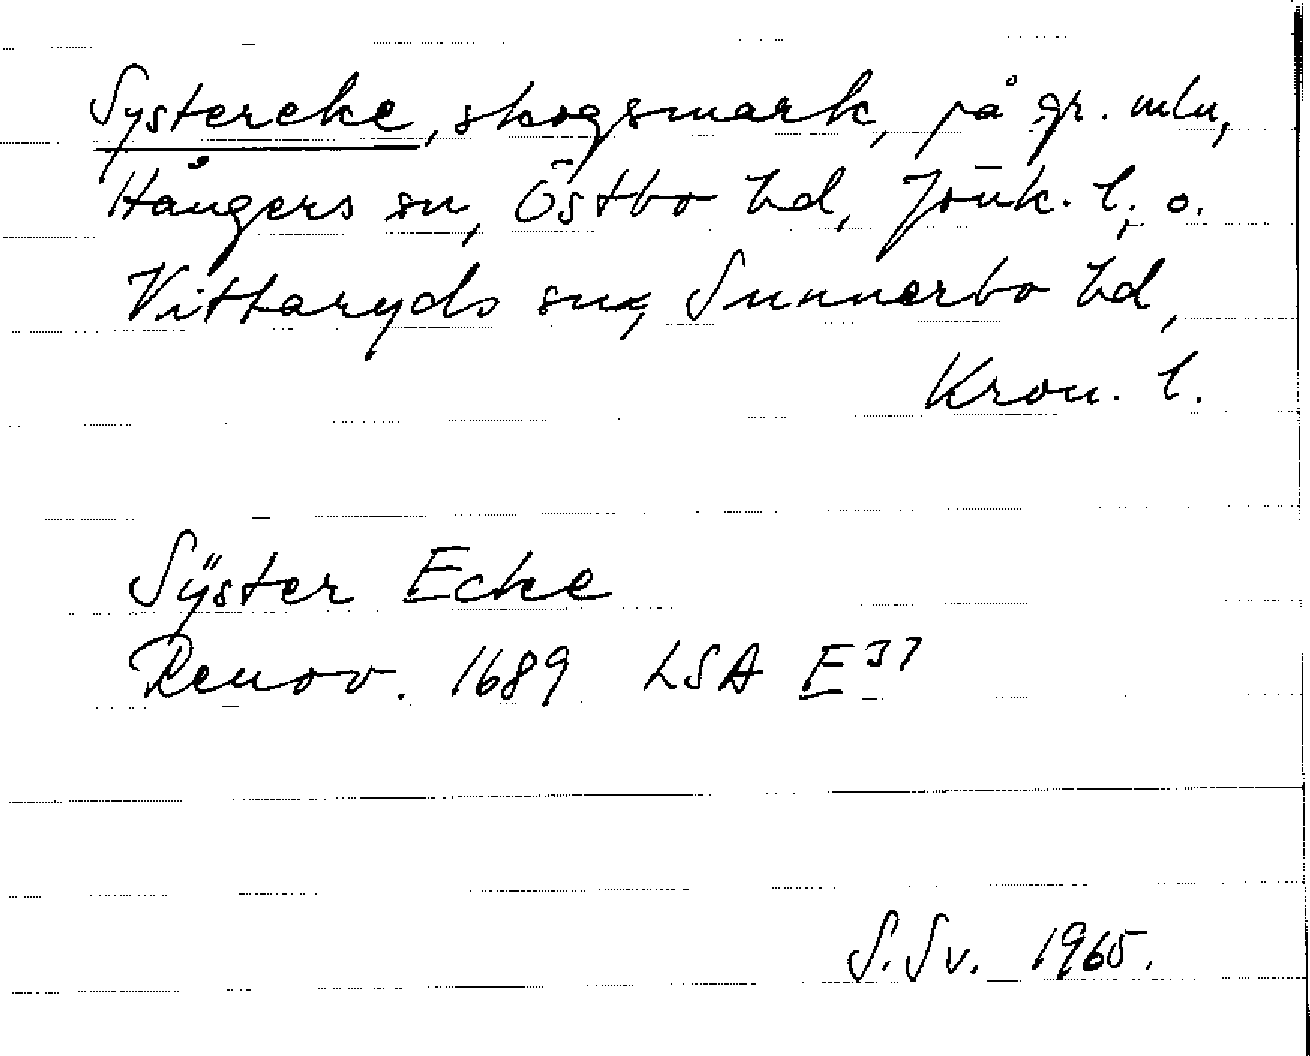 Systereke, skogsmark, på gr. mln,
Hångers sn, Östbo hd, Jönk. l. o.
Vittaryds sn, Sunnerbo hd,
Kron. l.
Sÿster Ecke
Renov. 1689 LSA E 37
S. Sv. 1965.